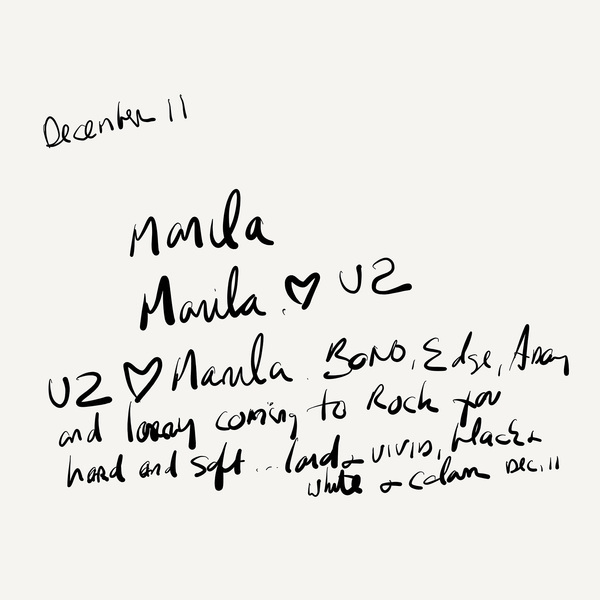 December 11
Manila
Manila ♡ U2
U2 ♡ Manila. BONO, Edge, Adam
and Larry coming to Rock you
hard and soft... loud & VIVID, black &
white & colour Dec. 11